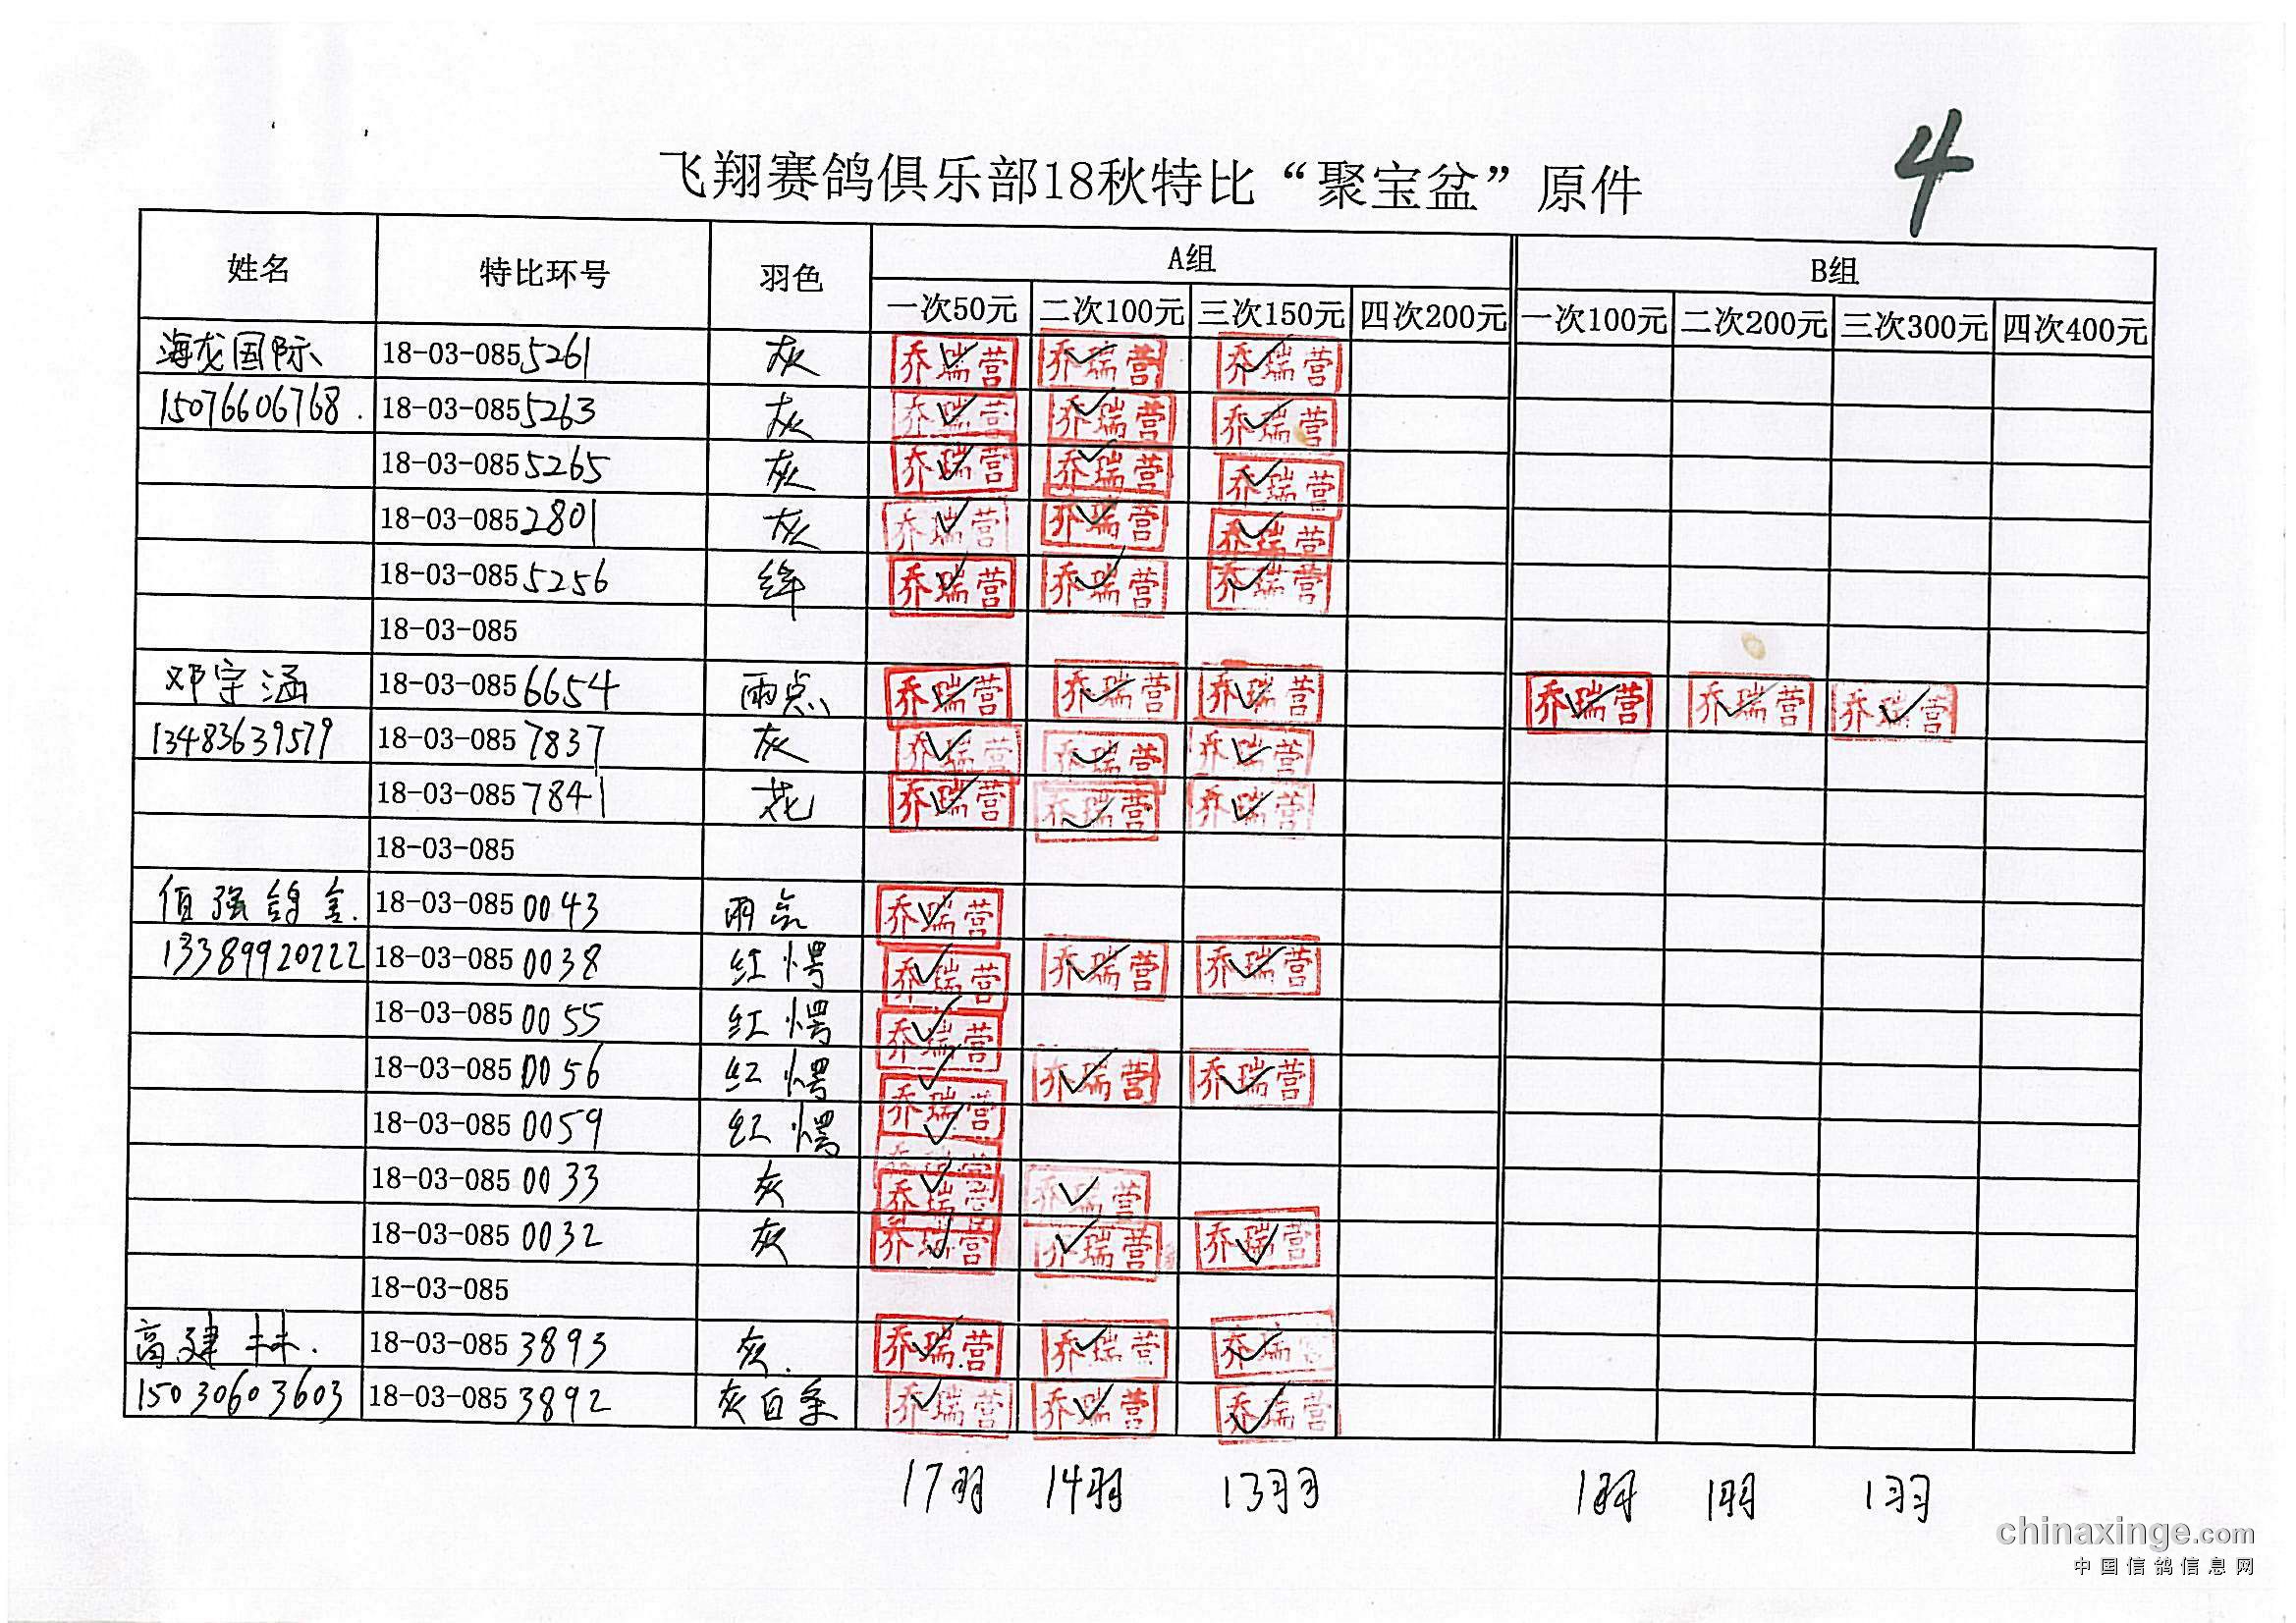 4
飞翔赛鸽俱乐部18秋特比“聚宝盆”原件
姓名 特比环号 羽色 A组 B组
一次50元 二次100元 三次150元 四次200元 一次100元 二次200元 三次300元 四次400元
海龙国际 18-03-0855261 灰 乔瑞营 乔瑞营 乔瑞营
15076606768. 18-03-0855263 灰 乔瑞营 乔瑞营 乔瑞营
18-03-0855265 灰 乔瑞营 乔瑞营 乔瑞营
18-03-0852801 灰 乔瑞营 乔瑞营 乔瑞营
18-03-0855256 绛 乔瑞营 乔瑞营 乔瑞营
18-03-085
邓宇涵 18-03-0856654 雨点 乔瑞营 乔瑞营 乔瑞营 乔瑞营 乔瑞营 乔瑞营
13483639579 18-03-0857837 灰 乔瑞营 乔瑞营 乔瑞营
18-03-0857841 花 乔瑞营 乔瑞营 乔瑞营
18-03-085
佰强鸽舍. 18-03-0850043 雨点 乔瑞营
13389920222 18-03-0850038 红愕 乔瑞营 乔瑞营 乔瑞营
18-03-0850055 红愕 乔瑞营
18-03-0850056 红愕 乔瑞营 乔瑞营 乔瑞营
18-03-0850059 红愕 乔瑞营
18-03-0850033 灰 乔瑞营 乔瑞营
18-03-0850032 灰 乔瑞营 乔瑞营 乔瑞营
18-03-085
高建林. 18-03-0853893 灰. 乔瑞营 乔瑞营 乔瑞营
15030603603 18-03-0853892 灰白条 乔瑞营 乔瑞营 乔瑞营
17羽 14羽 13羽 1羽 1羽 1羽
chinaxinge.com
中国信鸽信息网